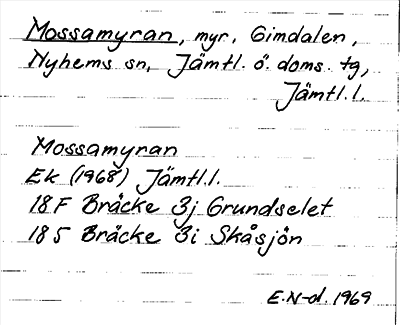 Mossamyran, myr, Gimdalen,
Nyhems sn, Jämtl. ö. doms. tg,
Jämtl.l.
Mossamyran
Ek (1968) Jämtl.l.
18 F Bräcke 3j Grundselet
18 5 Bräcke 3i Skåsjön
E.N-d. 1969